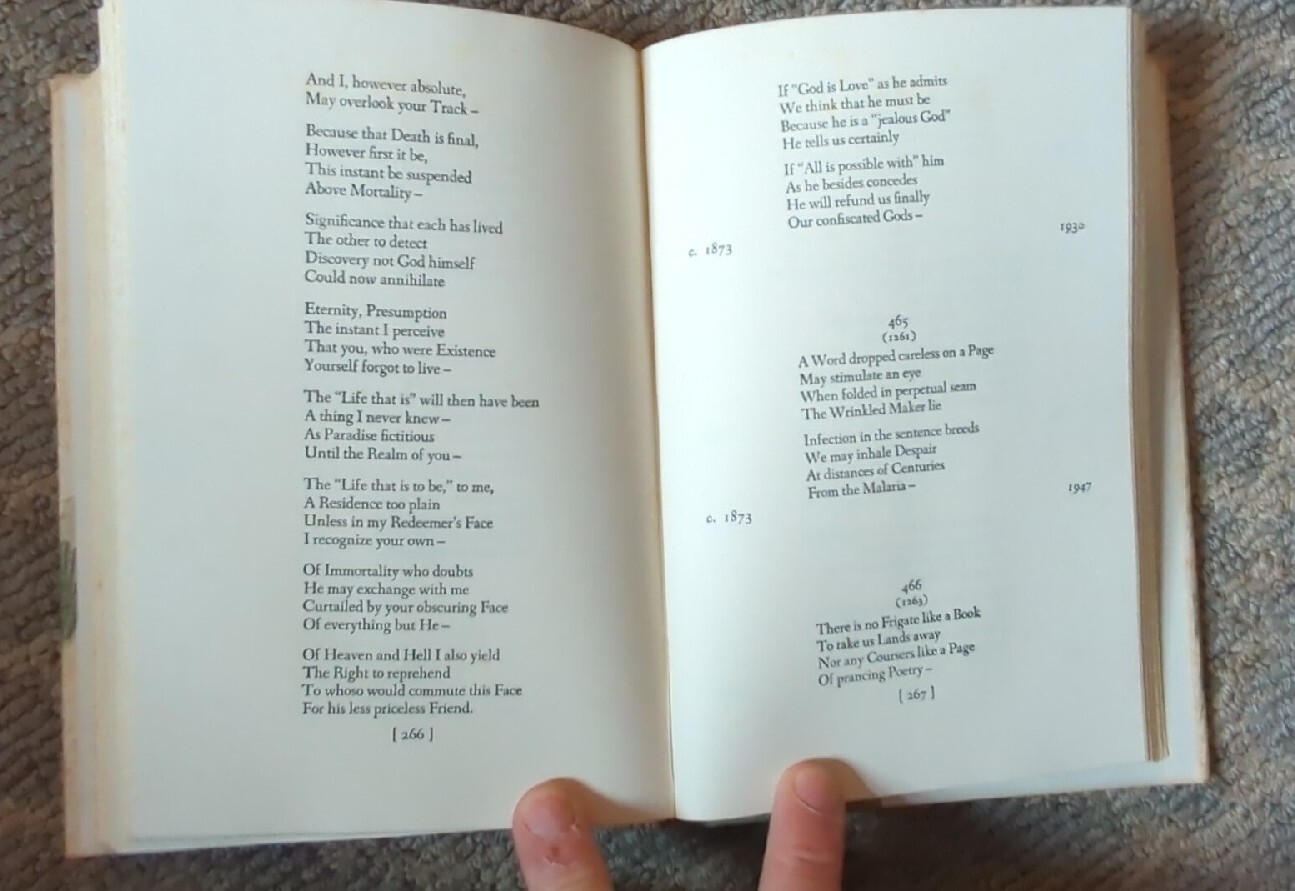 And I, however absolute,
May overlook your Track –
Because that Death is final,
However first it be,
This instant be suspended
Above Mortality –
Significance that each has lived
The other to detect
Discovery not God himself
Could now annihilate
Eternity, Presumption
The instant I perceive
That you, who were Existence
Yourself forgot to live –
The "Life that is" will then have been
A thing I never knew –
As Paradise fictitious
Until the Realm of you –
The "Life that is to be," to me,
A Residence too plain
Unless in my Redeemer's Face
I recognize your own –
Of Immortality who doubts
He may exchange with me
Curtailed by your obscuring Face
Of everything but He –
Of Heaven and Hell I also yield
The Right to reprehend
To whoso would commute this Face
For his less priceless Friend.
[ 266 ]
If "God is Love" as he admits
We think that he must be
Because he is a "jealous God"
He tells us certainly
If "All is possible with" him
As he besides concedes
He will refund us finally
Our confiscated Gods –
c. 1873 1930
465
(1261)
A Word dropped careless on a Page
May stimulate an eye
When folded in perpetual seam
The Wrinkled Maker lie
Infection in the sentence breeds
We may inhale Despair
At distances of Centuries
From the Malaria –
c. 1873 1947
466
(1263)
There is no Frigate like a Book
To take us Lands away
Nor any Coursers like a Page
Of prancing Poetry –
[ 267 ]